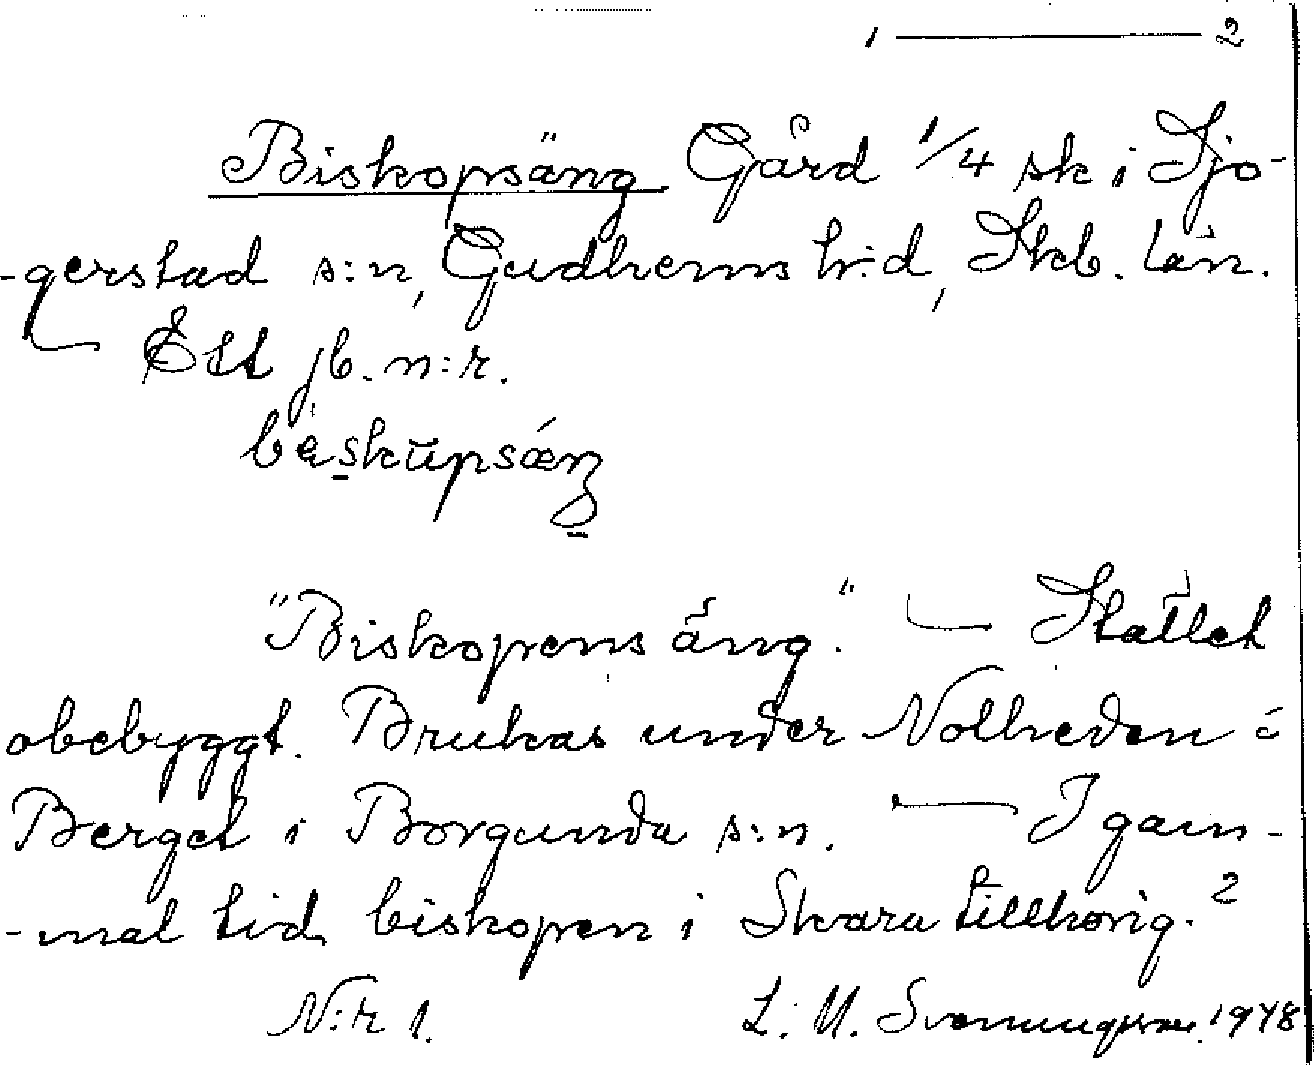 1 — 2
Biskopsäng Gård 1/4 sk i Sjo-
-gerstad s:n, Gudhems h:d, Skb. län.
— Ett jb. n:r.
"Biskopens äng." — Stället
obebyggt. Brukas under Nolheden å
Berget i Borgunda s:n. — I gam-
-mal tid biskopen i Skara tillhörig. 2
N:r 1. L. M. Svenungsson. 1948